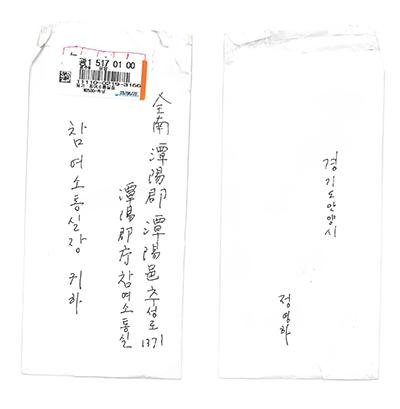 광1 517 01 00
11110-0219-3166
全南 潭陽郡 潭陽邑 추성로 1371
潭陽郡庁 참여소통실
참여소통실장 귀하
경기도 안양시
정영하